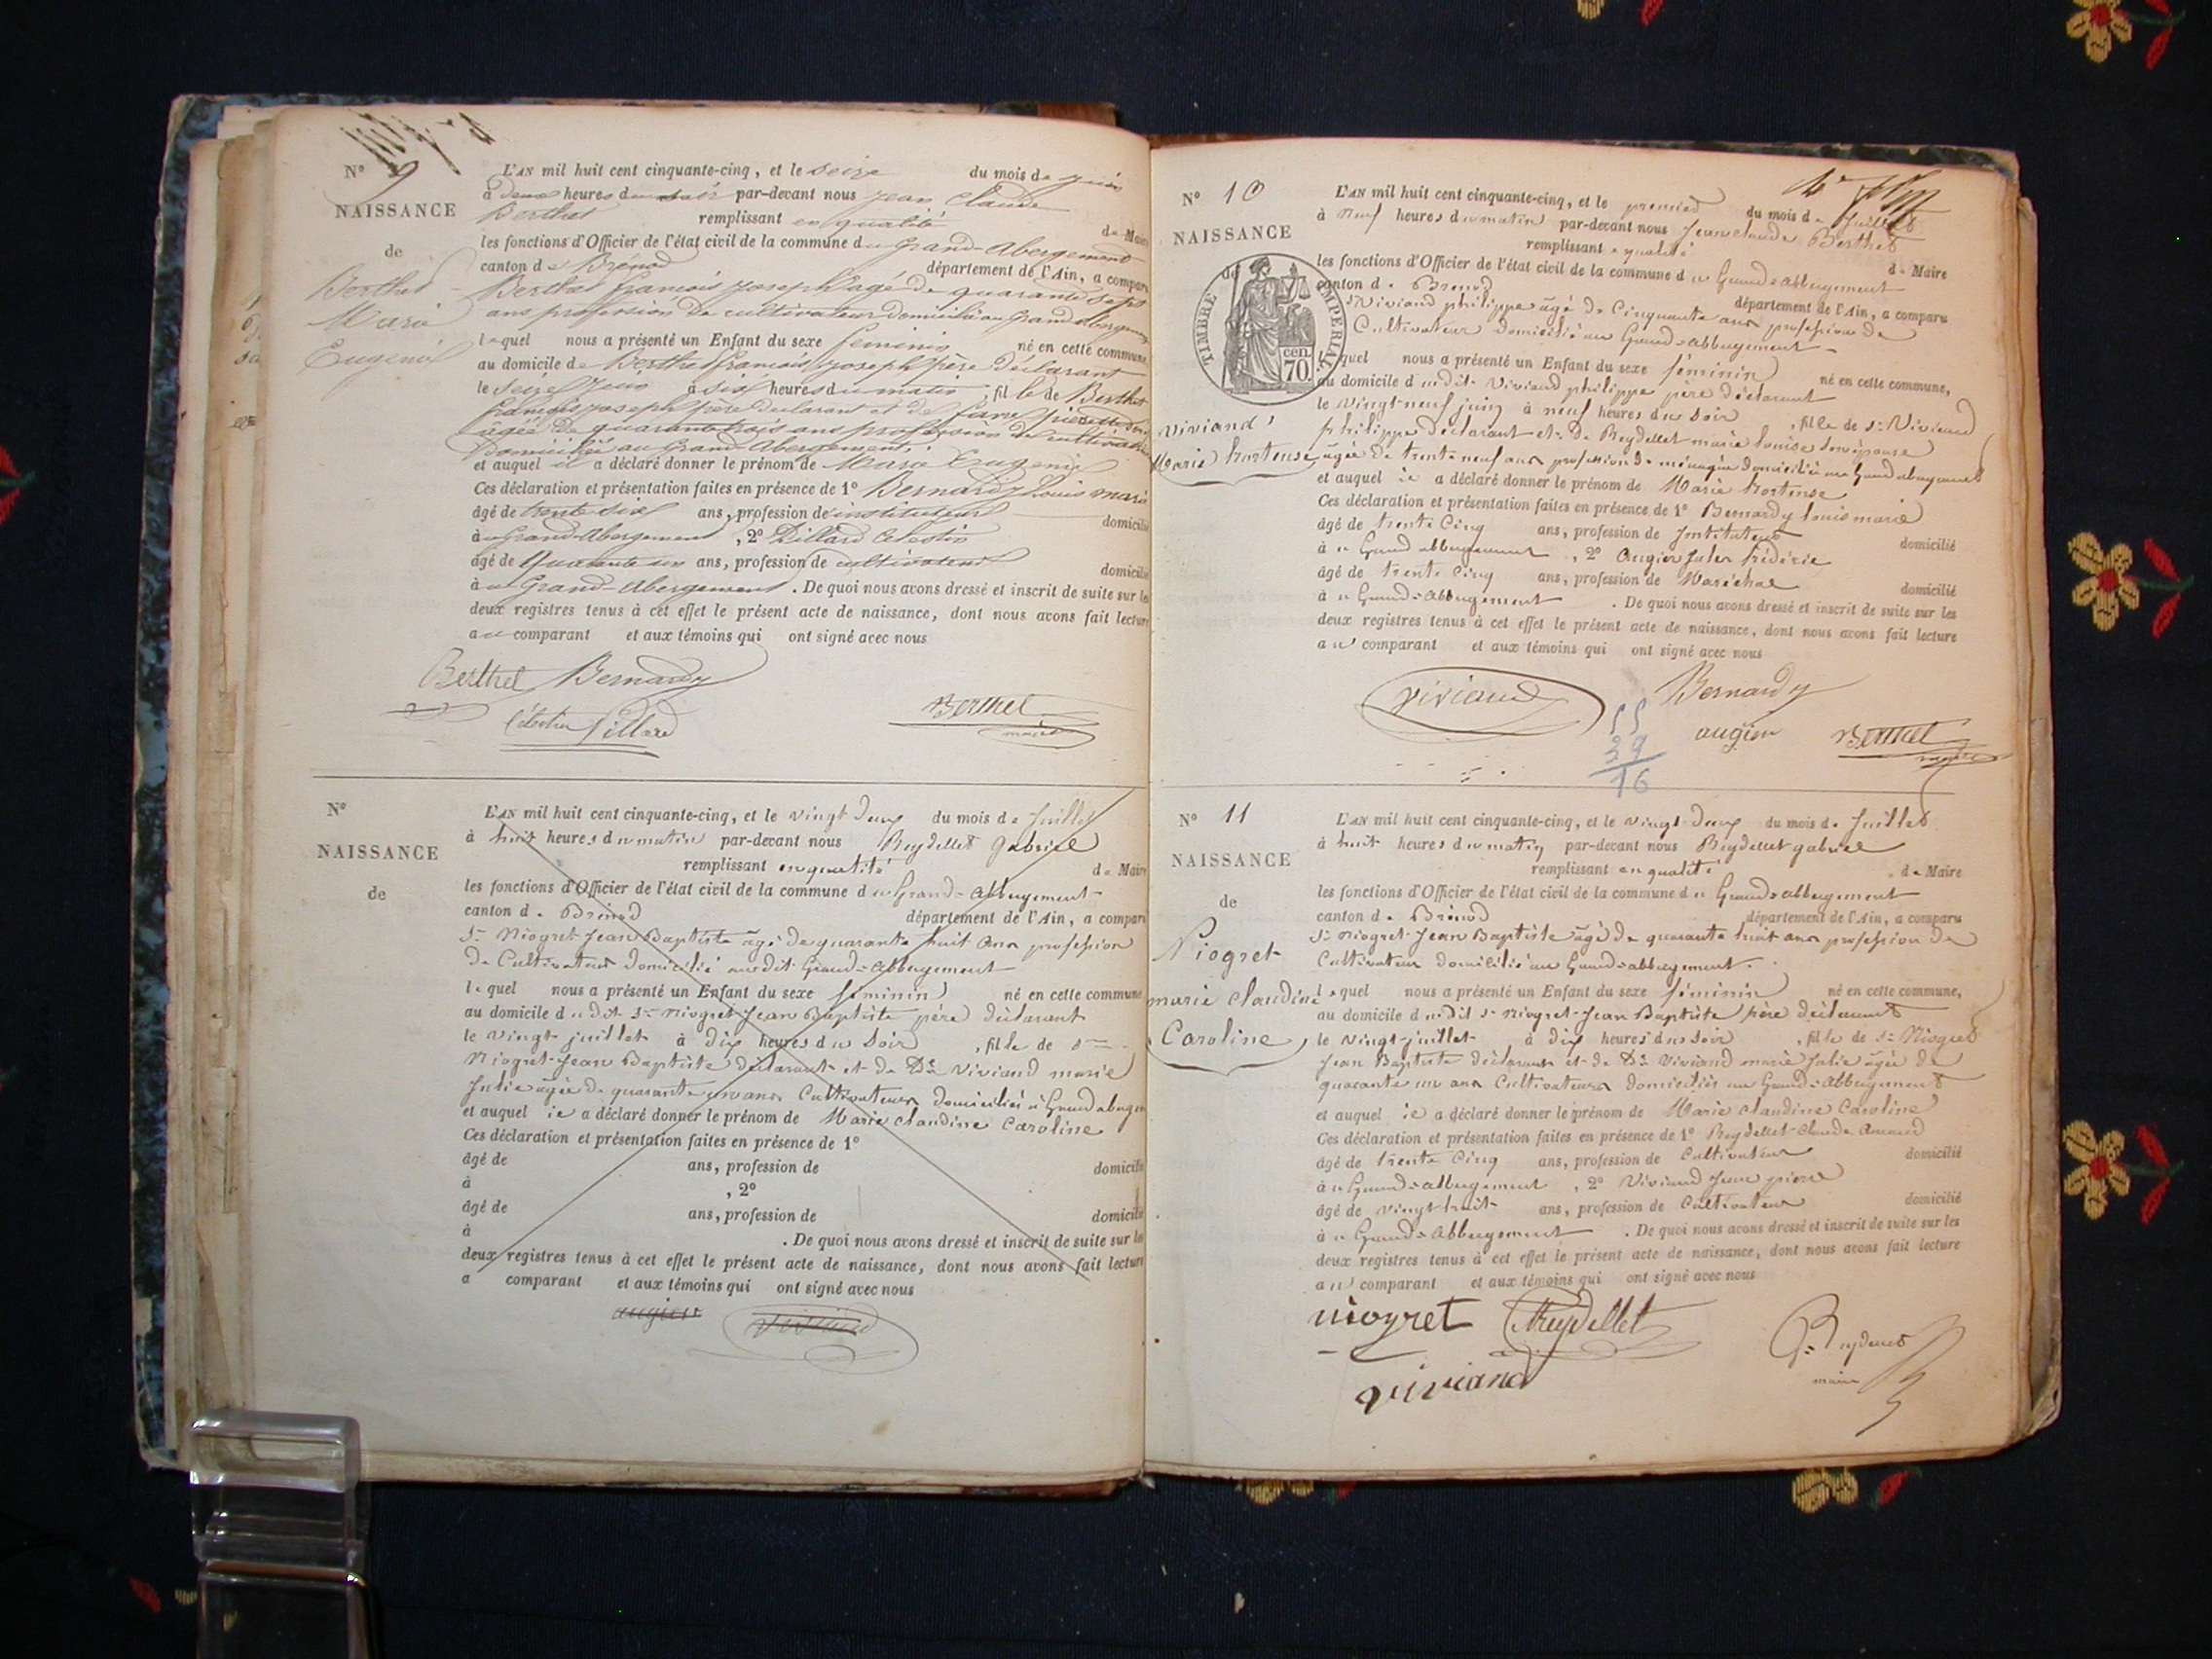 Nº 9
L'AN mil huit cent cinquante-cinq, et le seize du mois de juin
NAISSANCE
à deux heures du soir par-devant nous jean Claude
Berthet remplissant en qualité de Maire
de
les fonctions d'Officier de l'état civil de la commune du Grand-Abergement
canton de Brénod département de l'Ain, a comparu
Berthet
Marie
Eugenie
Berthet françois joseph agé de quarante sept
ans profession de cultivateur domicilié au Grand abergement
lequel nous a présenté un Enfant du sexe feminin né en cette commune,
au domicile de Berthet françois joseph père déclarant
le seize juin à six heures du matin, fille de Berthet
françois joseph père declarant et de
âgée de quarante trois ans profession de cultivatrice
Domiciliée au Grand Abergement
et auquel il a déclaré donner le prénom de Marie Eugenie
Ces déclaration et présentation faites en présence de 1º Bernardy Louis marie
âgé de trente six ans, profession de instituteur domicilié
à u Grand-Abergement, 2º Pillard Célestin
âgé de Quarante un ans, profession de cultivateur domicilié
à u Grand-Abergement. De quoi nous avons dressé et inscrit de suite sur les
deux registres tenus à cet effet le présent acte de naissance, dont nous avons fait lecture
au comparant et aux témoins qui ont signé avec nous
Berthet Bernardy
Célestin Pillard
Berthet
maire
Nº
L'AN mil huit cent cinquante-cinq, et le vingt deux du mois de juillet
NAISSANCE
à huit heures du matin par-devant nous Reydellet gabriel
remplissant en qualité de Maire
de
les fonctions d'Officier de l'état civil de la commune du Grand-Abbergement
canton de Brénod département de l'Ain, a comparu
Sr Niogret Jean Baptiste âgé de quarante huit ans profession
de Cultivateur domicilié audit Grand-abbergement
lequel nous a présenté un Enfant du sexe féminin né en cette commune,
au domicile du dit Sr Niogret Jean Baptiste père déclarant
le vingt juillet à dix heures du soir, fille de Sr
Niogret Jean Baptiste déclarant et de De Viviand marie
Julie âgée de quarante un ans Cultivateurs domiciliés à Grand abergement
et auquel il a déclaré donner le prénom de Marie claudine Caroline
Ces déclaration et présentation faites en présence de 1º
âgé de ans, profession de domicilié
à , 2º
âgé de ans, profession de domicilié
à . De quoi nous avons dressé et inscrit de suite sur les
deux registres tenus à cet effet le présent acte de naissance, dont nous avons fait lecture
a comparant et aux témoins qui ont signé avec nous
augier viviand
Nº 10
L'AN mil huit cent cinquante-cinq, et le premier du mois de juillet
NAISSANCE
à neuf heures du matin par-devant nous Jean claude Berthet
remplissant en qualité de Maire
de
les fonctions d'Officier de l'état civil de la commune du Grand-abbergement
canton de Brenod département de l'Ain, a comparu
TIMBRE IMPERIAL
cen
70
Sr Viviand philippe âgé de Cinquante ans profession de
Cultivateur domicilié au Grand-abbergement
lequel nous a présenté un Enfant du sexe féminin né en cette commune,
au domicile du dit Viviand philippe père déclarant
le vingt-neuf juin à neuf heures du soir, fille de Sr Viviand
Viviand
Marie hortense
philippe déclarant et de Reydellet marie louise son épouse
âgée de trente neuf ans profession de ménagère domiciliée au Grand abergement
et auquel il a déclaré donner le prénom de Marie hortense
Ces déclaration et présentation faites en présence de 1º Bernardy louis marie
âgé de trente Cinq ans, profession de Instituteur domicilié
à u Grand abbergement, 2º augier Jules frédéric
âgé de trente Cinq ans, profession de Maréchal domicilié
à u Grand-Abbergement. De quoi nous avons dressé et inscrit de suite sur les
deux registres tenus à cet effet le présent acte de naissance, dont nous avons fait lecture
au comparant et aux témoins qui ont signé avec nous
viviand Bernardy
augier Berthet
maire
55
39
16
Nº 11
L'AN mil huit cent cinquante-cinq, et le vingt deux du mois de juillet
NAISSANCE
à huit heures du matin par-devant nous Reydellet gabriel
remplissant en qualité de Maire
de
les fonctions d'Officier de l'état civil de la commune du Grand-abbergement
canton de Brénod département de l'Ain, a comparu
Niogret
marie claudine
Caroline
Sr Niogret Jean Baptiste âgé de quarante huit ans profession de
Cultivateur domicilié au Grand-abbergement.
lequel nous a présenté un Enfant du sexe féminin né en cette commune,
au domicile du dit Sr Niogret Jean Baptiste père déclarant
le vingt juillet à dix heures du soir, fille de Sr Niogret
Jean Baptiste déclarant et de De Viviand marie Julie âgée de
quarante un ans Cultivateurs domiciliés au Grand-Abbergement
et auquel il a déclaré donner le prénom de Marie claudine Caroline
Ces déclaration et présentation faites en présence de 1º Reydellet Claude Amand
âgé de trente Cinq ans, profession de Cultivateur domicilié
à u Grand-abbergement, 2º Viviand Jean pierre
âgé de vingt huit ans, profession de Cultivateur domicilié
à u Grand-Abbergement. De quoi nous avons dressé et inscrit de suite sur les
deux registres tenus à cet effet le présent acte de naissance, dont nous avons fait lecture
au comparant et aux témoins qui ont signé avec nous
niogret Reydellet
viviand
G. Reydellet
maire